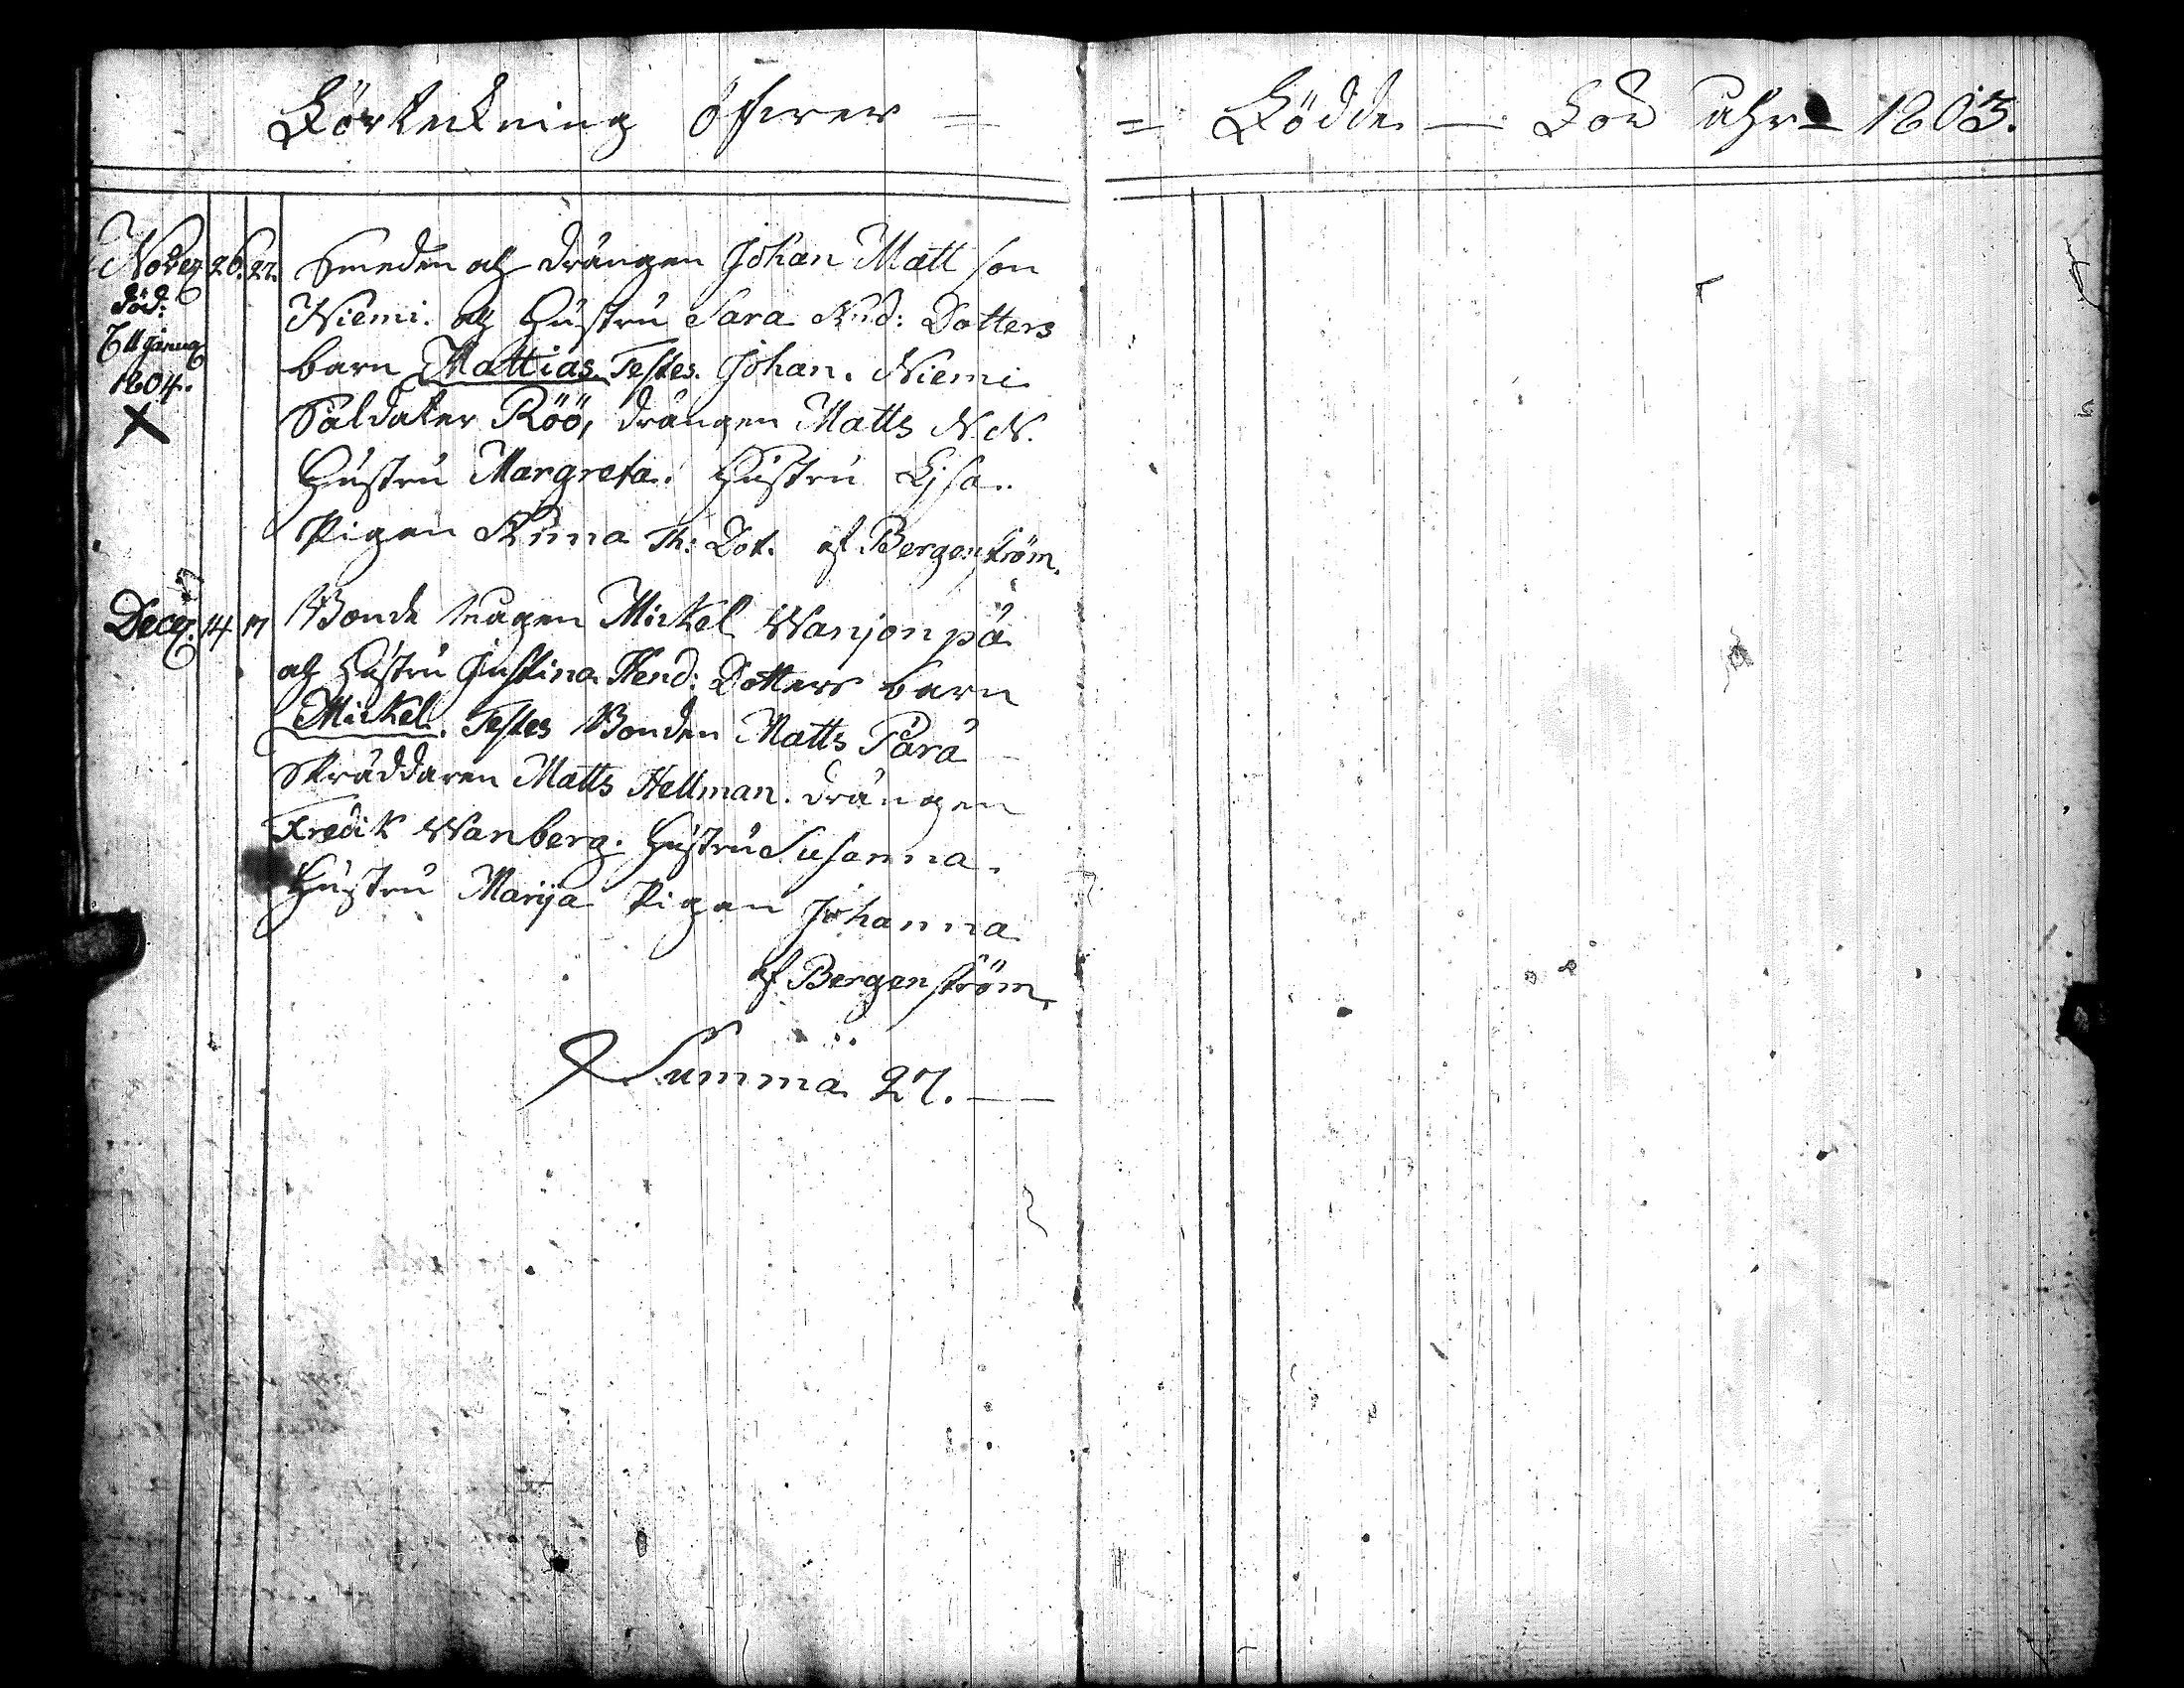 Förtekning öfwer = = Födde — För åhr 1803.
Nov: 26. 27. Smeden och drängen Johan Matt son
död: Niemi. och Hustru Sara And: Dotters
11 januar barn Mattias. Testes. Johan. Niemi
1804. Soldaten Röö, drängen Matts N.N.
X Hustru Margreta. Hustru Lisa.
Pigan Anna Th: Dot. af Bergenström.
Dec: 14 17 Bonde magen Mickel Wanjonpä
och Hustru Justina Hend: Dotters barn
Mickel. Testes Bonden Matts Parå
Skräddaren Matts Hellman. drängen
Fredik Wanberg. Hustru Susanna.
Hustru Marija Pigan Johanna
af Bergenström
Summa 27. —